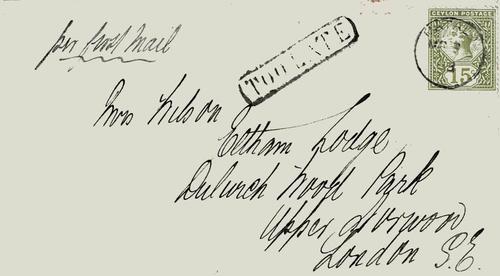 per first Mail
TOO LATE
CEYLON POSTAGE
15
Mrs Wilson
Eltham Lodge
Dulwich Wood Park
Upper Norwood
London S.E.